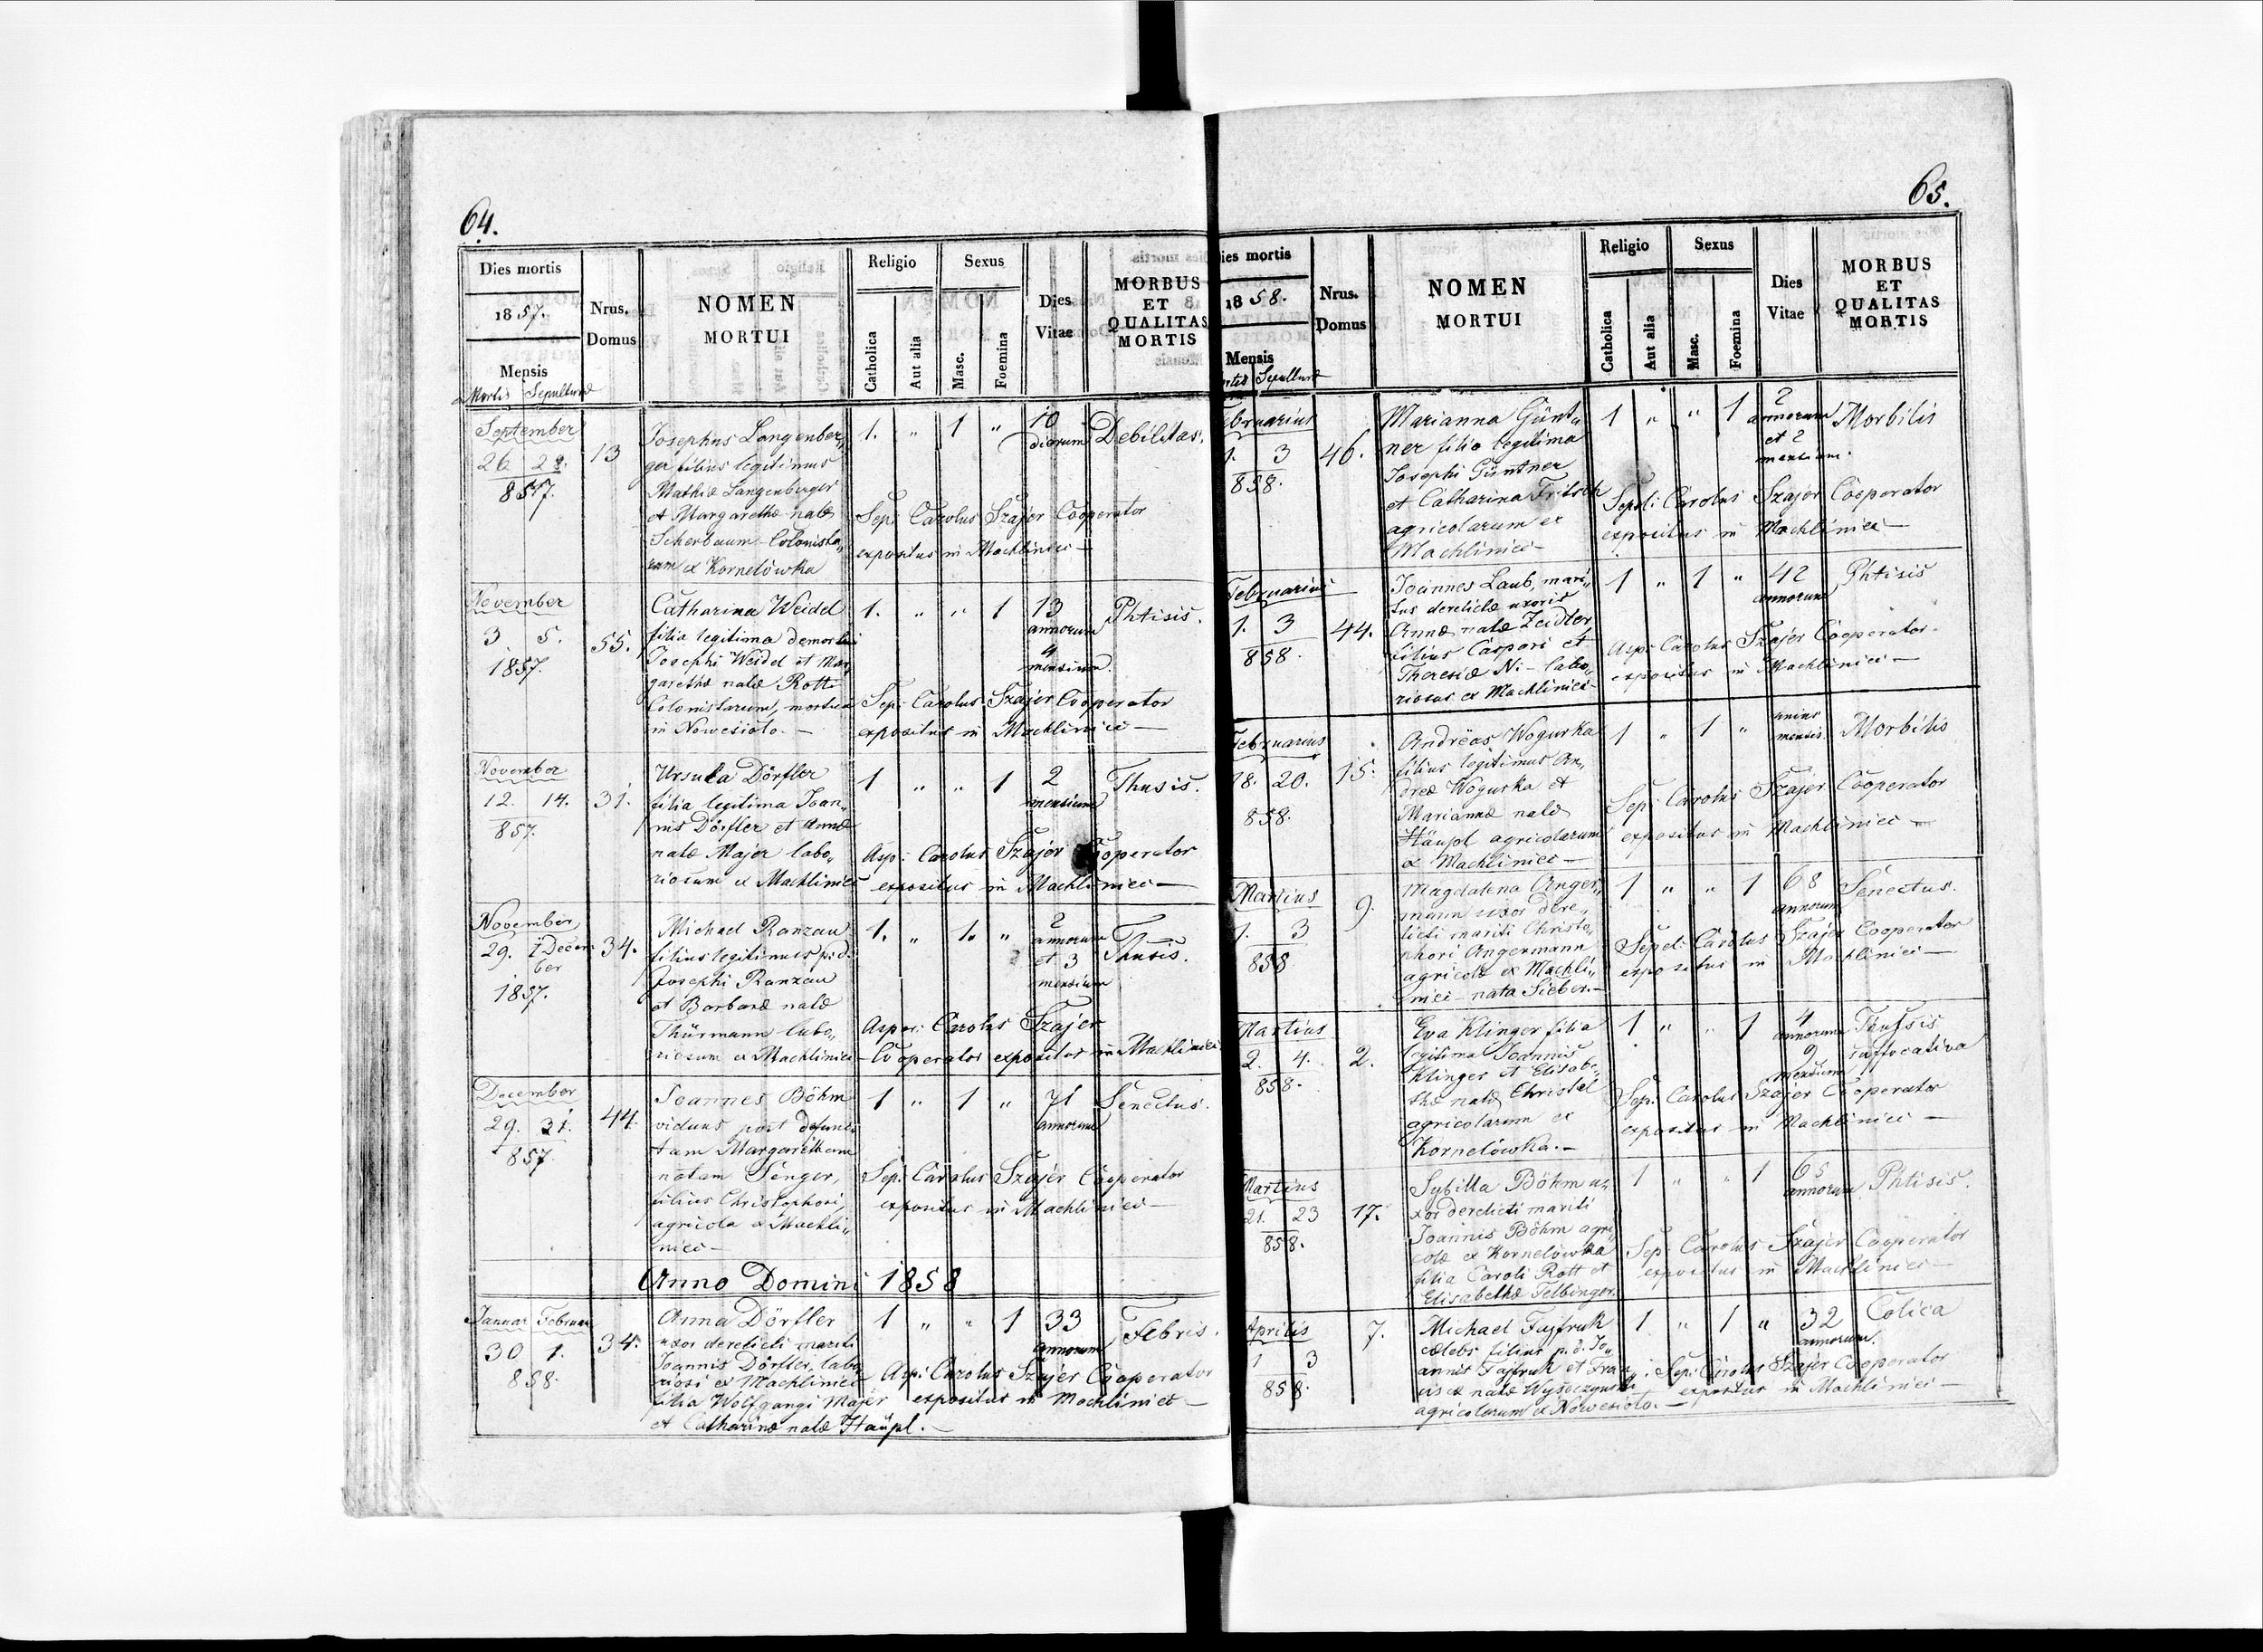 64.
Dies mortis
1857.
Mensis
Mortis Sepulturæ
Nrus.
Domus
NOMEN
MORTUI
Religio
Catholica
Aut alia
Sexus
Masc.
Foemina
Dies
Vitae
MORBUS
ET
QUALITAS
MORTIS
September
26 28.
857.
13
Josephus Langenber„
ger filius legitimus
Mathiæ Langenberger
et Margarethæ natæ
Scherbaum Colonista„
rum ex Kornelówka
1. „ 1 „
10
dierum
Debilitas.
Sep: Carolus Szajer Cooperator
expositus in Machliniec —
November
3. 5.
1857.
55.
Catharina Weidel
filia legitima demortui
Josephi Weidel et Mar„
garethæ natæ Rott
Colonistarum, mortua
in Nowesioło. —
1. „ „ 1
13
annorum
4
mensium.
Phtisis.
Sep: Carolus Szajer Cooperator
expositus in Machliniec —
November
12. 14.
857.
31.
Ursula Dörfler
filia legitima Joan„
nis Dörfler et Annæ
natæ Majer labo„
riosum ex Machliniec
1 „ „ 1
2
mensium
Thusis.
Asp: Carolus Szajer Cooperator
expositus in Machliniec —
November
29. 1 Decem
ber
1857.
34.
Michael Ranzau
filius legitimus p.d.
Josephi Ranzau
et Barbaræ natæ
Thürmann labo„
riosum ex Machliniec
1. „ 1. „
2
annorum
et 3
mensium
Thusis.
Asper: Carolus Szajer
Cooperator expositus in Machliniec
December
29. 31.
857.
44.
Joannes Böhm
viduus post defunc
tam Margaretham
natam Senger,
filius Christophori,
agricola ex Machli„
niec —
1 „ 1 „
71
annorum
Senectus.
Sep: Carolus Szajer Cooperator
expositus in Machliniec —
Anno Domini 1858
Januar Februar
30 1.
858.
34.
Anna Dörfler
uxor derelicti mariti
Joannis Dörfler, labo
riosi ex Machliniec
filia Wolfgangi Majer
et Catharinæ natæ Häupl. —
1 „ „ 1
33
annorum
Febris.
Asp: Carolus Szajer Cooperator
expositus in Machliniec —
65.
ies mortis
1858.
Mensis
rtis Sepulturæ
Nrus.
Domus
NOMEN
MORTUI
Religio
Catholica
Aut alia
Sexus
Masc.
Foemina
Dies
Vitae
MORBUS
ET
QUALITAS
MORTIS
ebruarius
1. 3
858.
46.
Marianna Günt„
ner filia legitima
Josephi Güntner
et Catharina Fritsch
agricolarum ex
Machliniec —
1 „ „ 1
2
annorum
et 2
mensium.
Morbilis
Sepel: Carolus Szajer Cooperator
expositus in Machliniec —
Februarius
1. 3
858.
44.
Joannes Laub, mari„
tus derelictæ uxoris
Annæ natæ Zeidler,
filius Caspari et
Theresiæ N: — labo„
riosus ex Machliniec
1 „ 1 „
42
annorum
Phtisis
Asp: Carolus Szajer Cooperator
expositus in Machliniec —
Februarius
18. 20.
858.
15.
Andreas Wogurka
filius legitimus An„
dreæ Wogurka et
Mariannæ natæ
Häupl agricolarum
ex Machliniec —
1 „ 1 „
unius
mensis.
Morbilis
Sep: Carolus Szajer Cooperator
expositus in Machliniec —
Martius
1. 3
858
9.
Magdalena Anger„
mann uxor dere„
licti mariti Christo„
phori Angermann
agricolæ ex Machli„
niec — nata Sieber. —
1 „ „ 1
68
annorum
Senectus.
Sepel: Carolus Szajer Cooperator
expositus in Machliniec —
Martius
2. 4.
858.
2.
Eva Klinger filia
legitima Joannis
Klinger et Elisabe„
thæ natæ Christel
agricolarum ex
Kornelówka. —
1 „ „ 1
4
annorum
9
mensium
Taufsis
suffocativa
Sep: Carolus Szajer Cooperator
expositus in Machliniec —
Martius
21. 23
858.
17.
Sybilla Böhm u„
xor derelicti mariti
Joannis Böhm agri
colæ ex Kornelówka
filia Caroli Rott et
Elisabethæ Felbinger.
1 „ „ 1
65
annorum
Phtisis.
Sep: Carolus Szajer Cooperator
expositus in Machliniec —
Aprilis
1 3
858.
7.
Michael Fajfruk
cælebs filius p.d. Jo„
annis Fajfruk et Fran
ciscæ natæ
agricolarum ex Nowesioło. —
1 „ 1 „
32
annorum.
Colica
Sep: Carolus Szajer Cooperator
expositus in Machliniec —